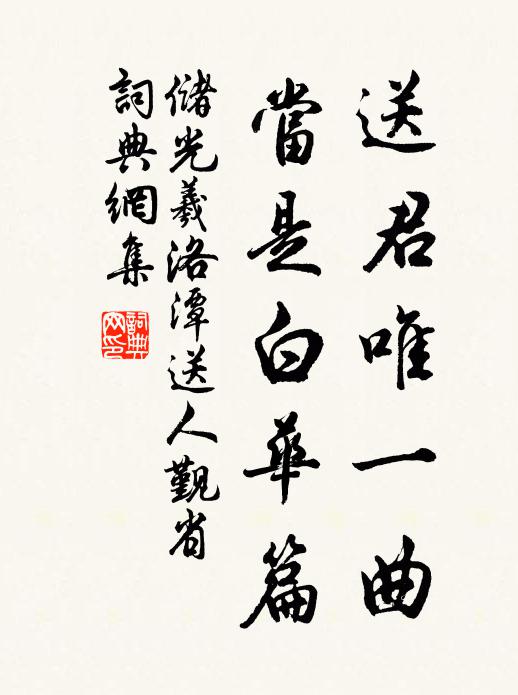 送君唯一曲
當是白華篇
儲光羲洛潭送人觀省
詞典網集
詞典网印